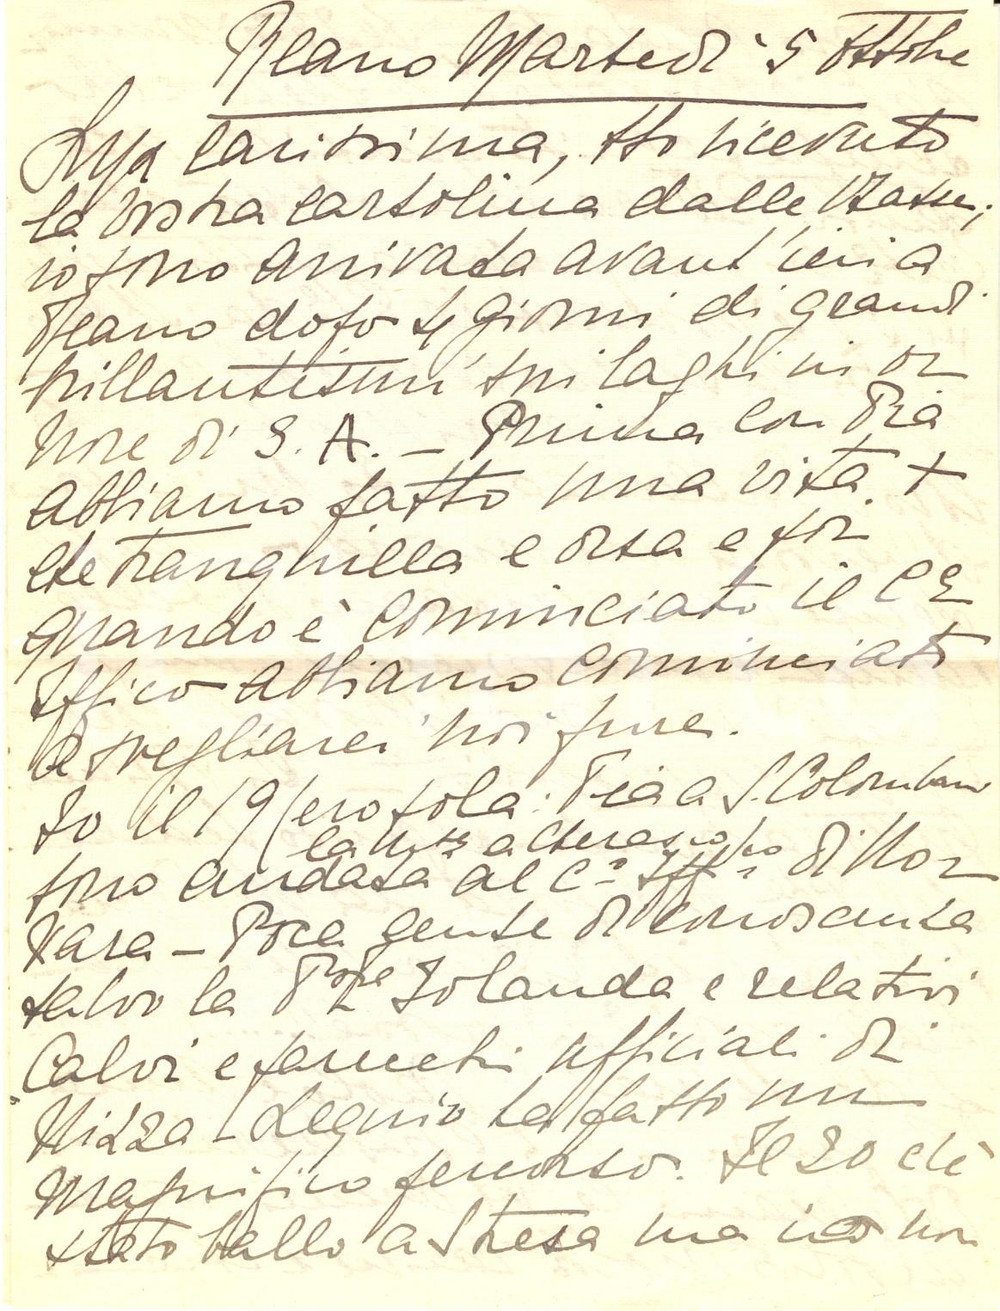 Reano Martedì 5 Ottobre
Lya carissima, Ho ricevuto
la vostra cartolina dalle
io sono arrivata avant'ieri a
Reano dopo 4 giorni di grandi
brillantissimi sui laghi in o
nore di S. A. – Prima con Pia
abbiamo fatto una vita
che tranquilla e orsa e poi
quando è cominciato il C
Ippico abbiamo cominciato
a svegliarci noi pure.
Io il 19 (ero sola: Pia a S. Colombano
sono andata al C° Ipp° di No
vara – Poca gente di conoscenza
salvo la Pssa Iolanda e relativi
Calvi e parecchi ufficiali di
Nizza – Lequio ha fatto un
magnifico percorso. Il 20 c'è
stato ballo a Stresa ma io non